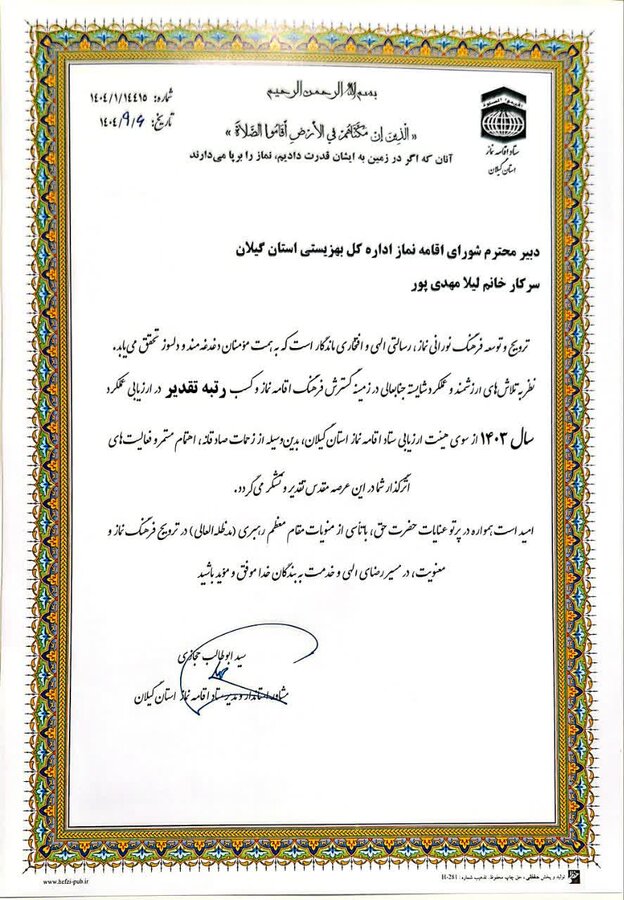 بسم الله الرحمن الرحیم
شماره: ۱۴۰۴/۱/۱۴۴۱۵
تاریخ: ۱۴۰۴/۹/۹
اقیموا الصلوة
ستاد اقامه نماز
استان گیلان
« الَّذِينَ إِن مَّكَّنَّاهُمْ فِي الْأَرْضِ أَقَامُوا الصَّلَاةَ »
آنان که اگر در زمین به ایشان قدرت دادیم، نماز را برپا می‌دارند
دبیر محترم شورای اقامه نماز اداره کل بهزیستی استان گیلان
سرکار خانم لیلا مهدی پور
ترویج و توسعه فرهنگ نورانی نماز، رسالتی الهی و افتخاری ماندگار است که به همت مؤمنان دغدغه مند و دلسوز تحقق می‌یابد.
نظر به تلاش‌های ارزشمند و عملکرد شایسته جنابعالی در زمینه گسترش فرهنگ اقامه نماز و کسب رتبه تقدیر در ارزیابی عملکرد
سال ۱۴۰۳ از سوی هیئت ارزیابی ستاد اقامه نماز استان گیلان، بدین‌وسیله از زحمات صادقانه، اهتمام مستمر و فعالیت‌های
اثرگذار شما در این عرصه مقدس تقدیر و تشکر می‌گردد.
امید است همواره در پرتو عنایات حضرت حق، با تأسی از منویات مقام معظم رهبری (مدظله العالی) در ترویج فرهنگ نماز و
معنویت، در مسیر رضای الهی و خدمت به بندگان خدا موفق و مؤید باشید
سید ابوطالب حجازی
مشاور استاندار و مدیر ستاد اقامه نماز استان گیلان
www.hefzi-pub.ir
تولید و پخش حفظی ، حق چاپ محفوظ. تذهیب شماره : H-281